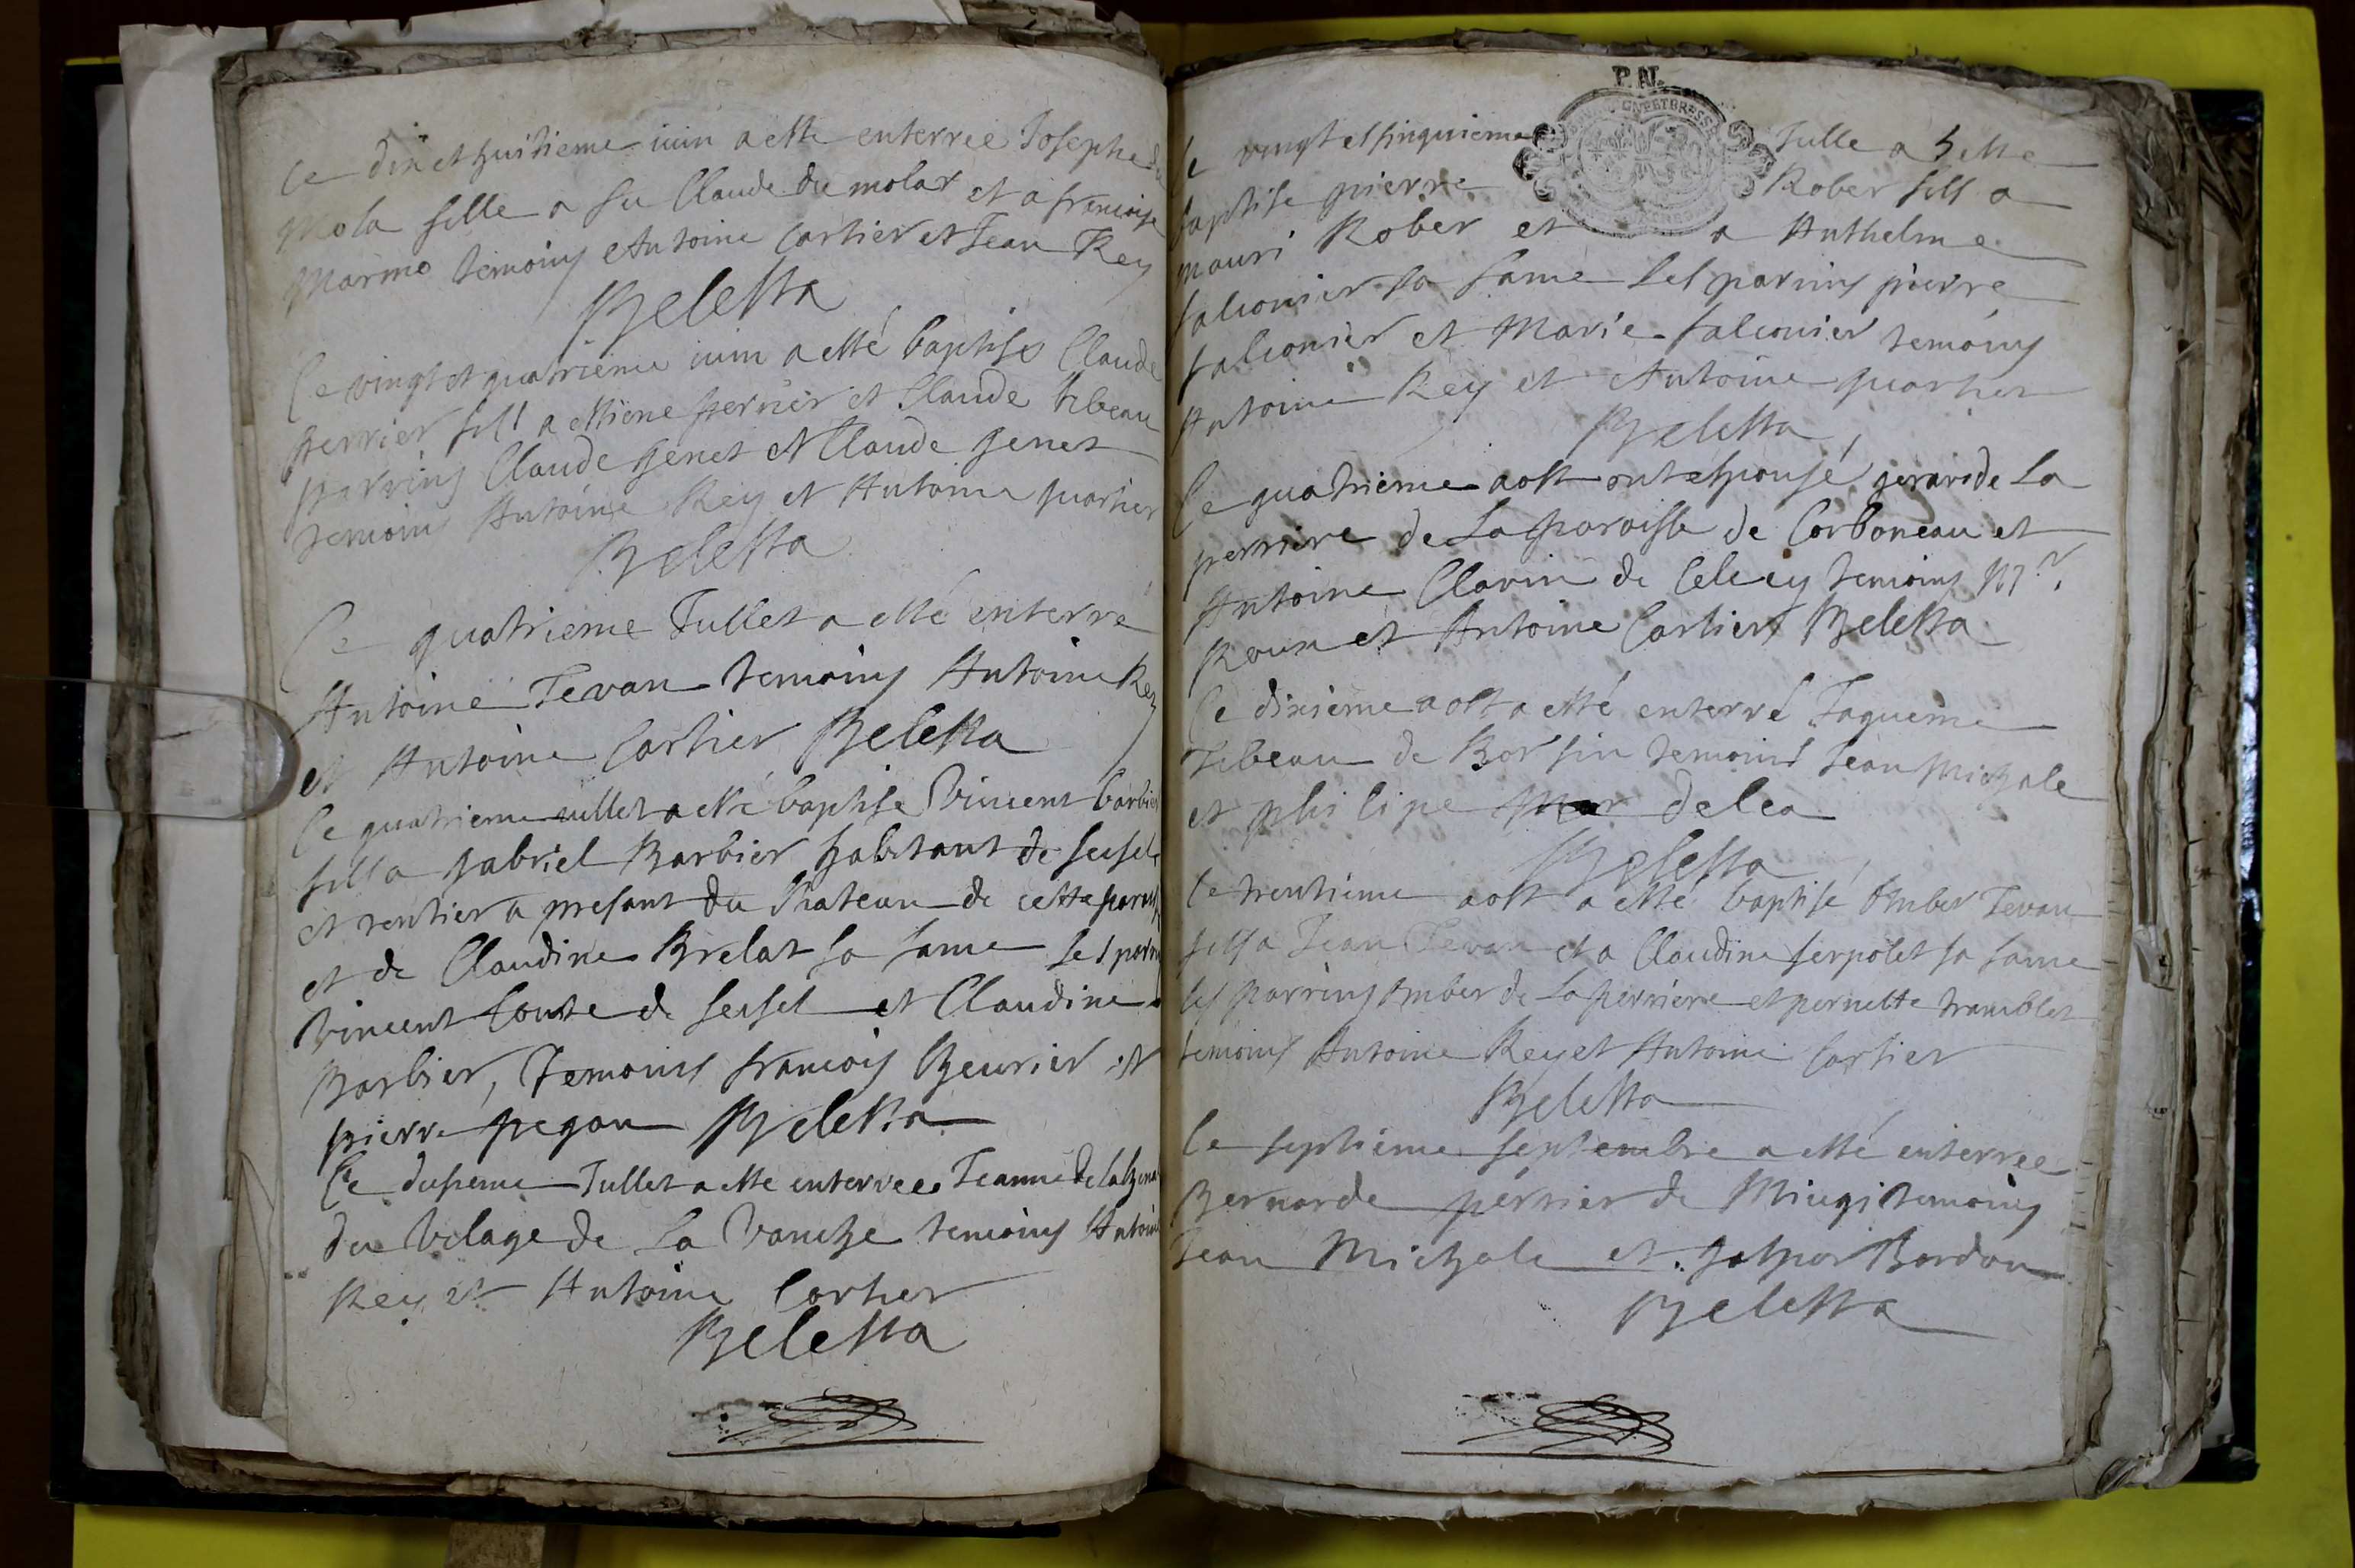 Le dix et huitieme iuin a este enterree Josephe du
Mola fille a feu Claude du molar et a francoise
Marmo temoins Antoine Cartier et Jean Rey
Beletta
Le vingt et quatrieme iuin a esté baptise Claude
perrier fils a Ettiene perrier et Claude tibeau
parrins Claude genet et Claude genet
temoins Antoine Rey et Antoine quartier
Beletta
Le quatrieme Jullet a esté enterré
Antoine Tevan temoins Antoine Rey
et Antoine Cartier Beletta
Le quatrieme iullet a esté baptise Vincent barbier
fils a gabriel Barbier habitant de seisel
et rentier a presant du Chateau de cette paroisse
et de Claudine Brelat sa fame les parrins
Vincent Conte de seisel et Claudine
Barbier, Temoins francois Beurier et
pierre pegon Beletta
Le Jullet a este enterree Jeanne
du vilage de La Vanche temoins Antoine
Rey et Antoine Cartier
Beletta
P.AL.
Le vingt et sinquieme Julle a este
baptise pierre Rober fils a
mauri Rober et a Anthelme
falconier sa fame les parrins pierre
falconier et Marie falconier temoins
Antoine Rey et Antoine quartier
Beletta
Le quatrieme aost ont espousé gerarde La
perriere de La paroisse de Corboneau et
Antoine Clavin de temoins
Roux et Antoine Cartier Beletta
Le dixieme aost a esté enterré Jaqueme
Tibeau de Borsin temoins Jean Michale
et philipe delea
Beletta
Le trentieme aost a esté baptisé Amber Tevan
fils a Jean Tevan et a Claudine serpolet sa fame
les parrins Amber de La perriere et pernette tramblet
temoins Antoine Rey et Antoine Cartier
Beletta
Le septieme septembre a esté enterree
Bernarde perrier de Miugi temoins
Jean Michale et gaspar Bardon
Beletta